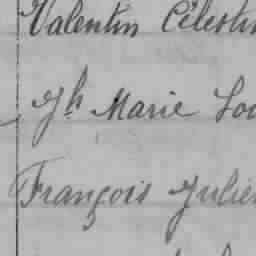 Valentin Célestin
Jh Marie Lou
François Julien